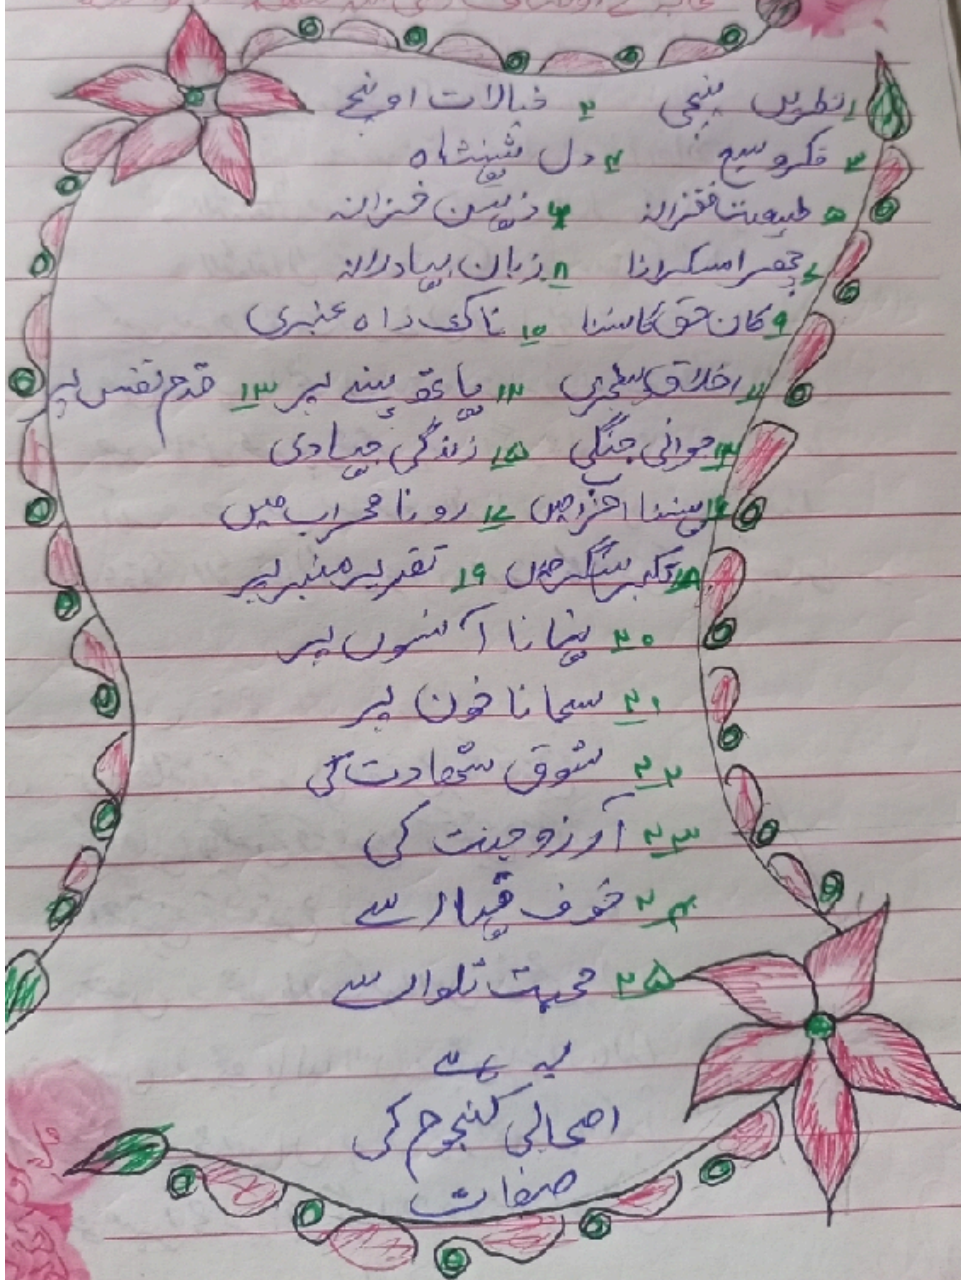 ۱ نظریں نیچی ۲ خیالات اونچے
۳ فکر وسیع ۴ دل شہنشاہ
۵ طبیعت فقیرانہ ۶ ذہین خزانہ
۷ چہرا مسکرانا ۸ زبان بہادرانہ
۹ کان حق کا سننا ۱۰ ناک راہ عنبری
۱۱ اخلاق ۱۲ پاؤں پر ۱۳ قدم نفس پر
۱۴ جوانی جنگی ۱۵ زندگی جہادی
۱۶ ہنسنا میں ۱۷ رونا محراب میں
۱۸ تکبیر میں ۱۹ تقریر منبر پر
۲۰ آنسوں پر
۲۱ خون پر
۲۲ شوق شھادت کی
۲۳ آرزو جنت کی
۲۴ خوف قہار سے
۲۵ محبت تلوار سے
یہ ہے
اصحابی کنجوم کی
صفات